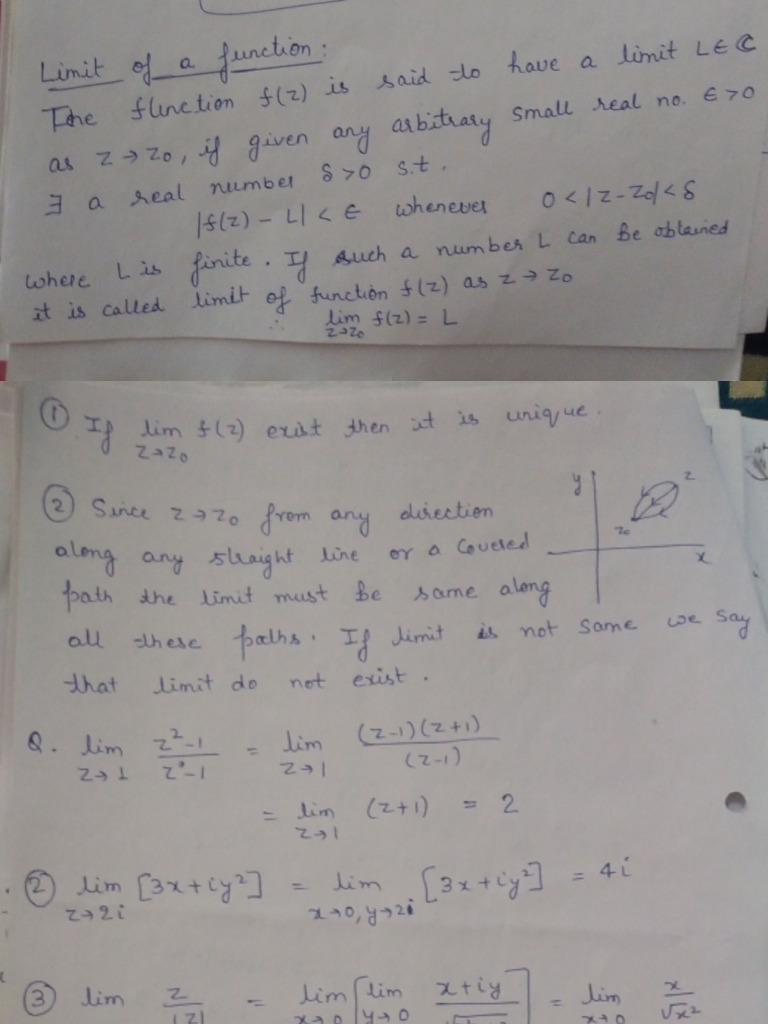 Limit of a function:
The function f(z) is said to have a limit L ∈ ℂ
as z → z₀, if given any arbitrary small real no. ϵ > 0
∃ a real number δ > 0 s.t.
|f(z) - L| < ϵ whenever 0 < |z - z₀| < δ
where L is finite. If such a number L can be obtained
it is called limit of function f(z) as z → z₀
∴ lim z→z₀ f(z) = L
① If lim z→z₀ f(z) exist then it is unique.
② Since z → z₀ from any direction
along any straight line or a covered
path the limit must be same along
all these paths. If limit is not same we say
that limit do not exist.
y
z
z₀
x
Q. lim z→1 (z²-1)/(z-1) = lim z→1 (z-1)(z+1)/(z-1)
= lim z→1 (z+1) = 2
② lim z→2i [3x+iy²] = lim x→0, y→2 [3x+iy²] = 4i
③ lim z/|z| = lim x→0 [lim y→0 x+iy/√] = lim x→0 x/√x²